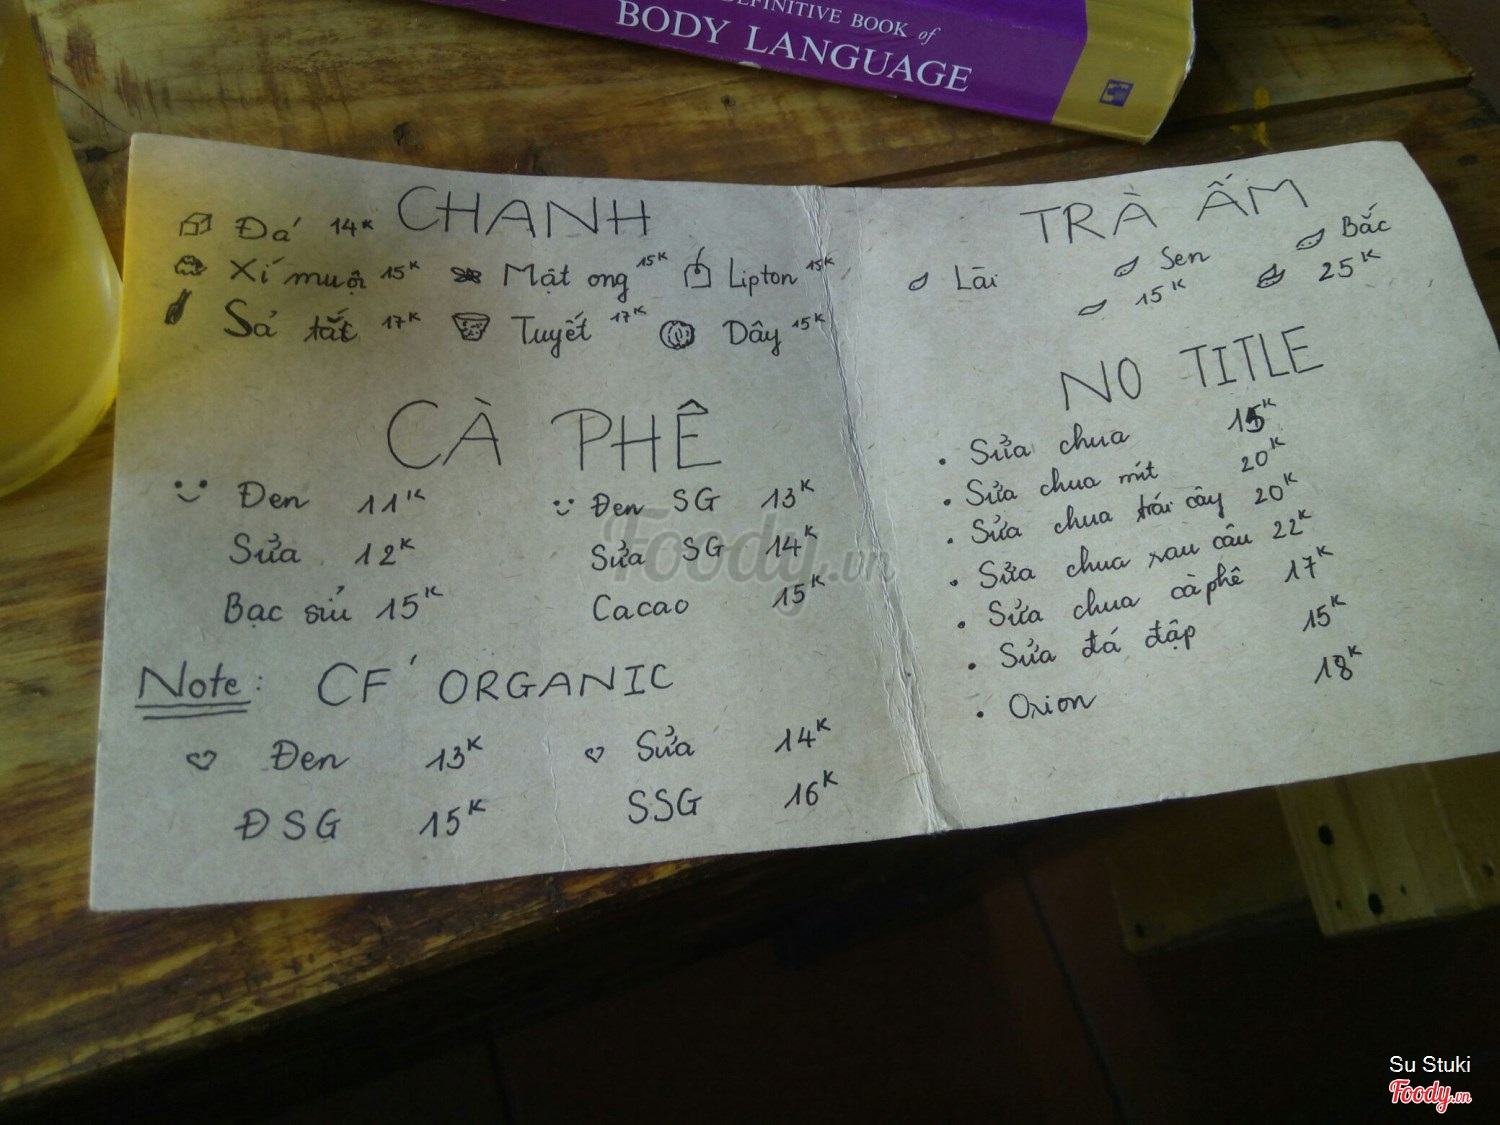 DEFINITIVE BOOK of
BODY LANGUAGE
CHANH
Đá 14K
Xí muội 15K Mật ong 15K Lipton 15K
Sả tắc 17K Tuyết 17K Dây 15K
CÀ PHÊ
Đen 11K Đen SG 13K
Sửa 12K Sửa SG 14K
Bạc sỉu 15K Cacao 15K
Note: CF' ORGANIC
Đen 13K Sửa 14K
ĐSG 15K SSG 16K
TRÀ ẤM
Lài Sen Bắc
15K 25K
NO TITLE
• Sửa chua 15K
• Sửa chua mít 20K
• Sửa chua trái cây 20K
• Sửa chua rau câu 22K
• Sửa chua cà phê 17K
• Sửa đá đập 15K
• Orion 18K
Foody.vn
Su Stuki
Foody.vn